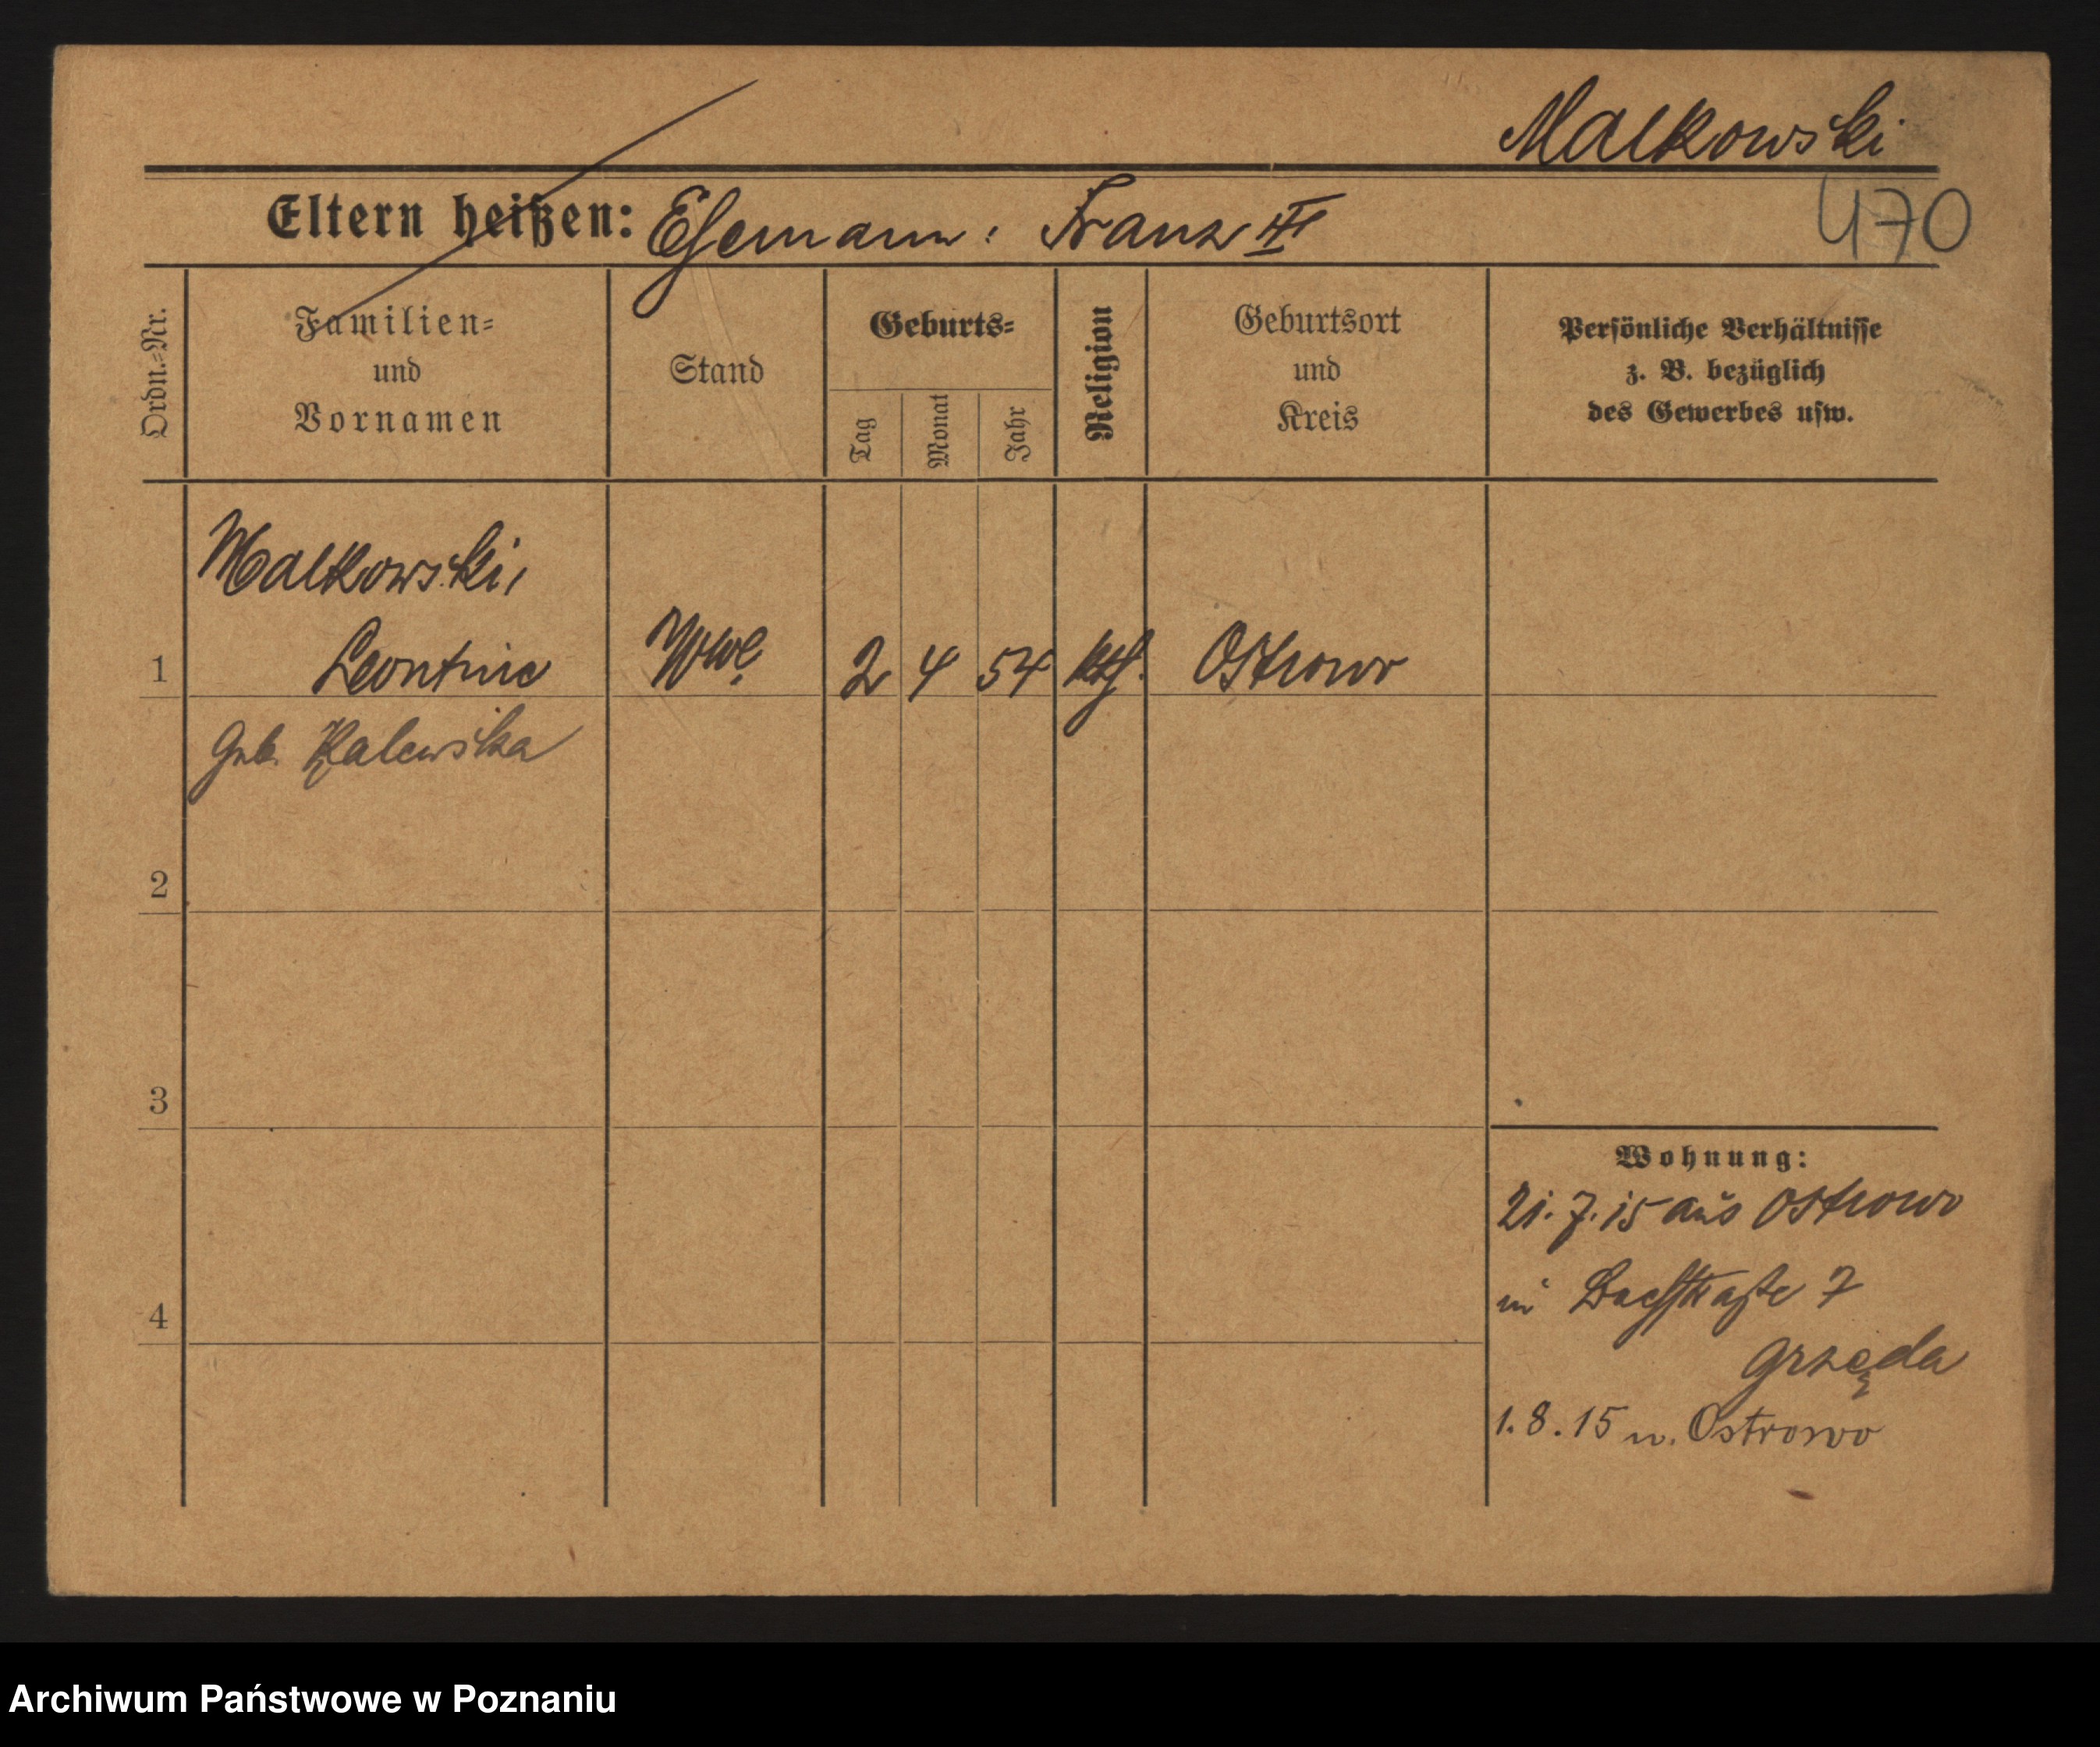 Malkowski
470
Eltern heißen: Ehemann: Franz III
Ordn.-Nr.
Familien-
und
Vornamen
Stand
Geburts-
Tag
Monat
Jahr
Religion
Geburtsort
und
Kreis
Persönliche Verhältnisse
z. B. bezüglich
des Gewerbes usw.
Malkowski,
1 Leontine Wwe. 2 4 54 kth. Ostrowo
Geb.
2
3
4
Wohnung:
21.7.15 aus Ostrowo
in Bachstraße 7
Grzęda
1.8.15 n. Ostrowo
Archiwum Państwowe w Poznaniu